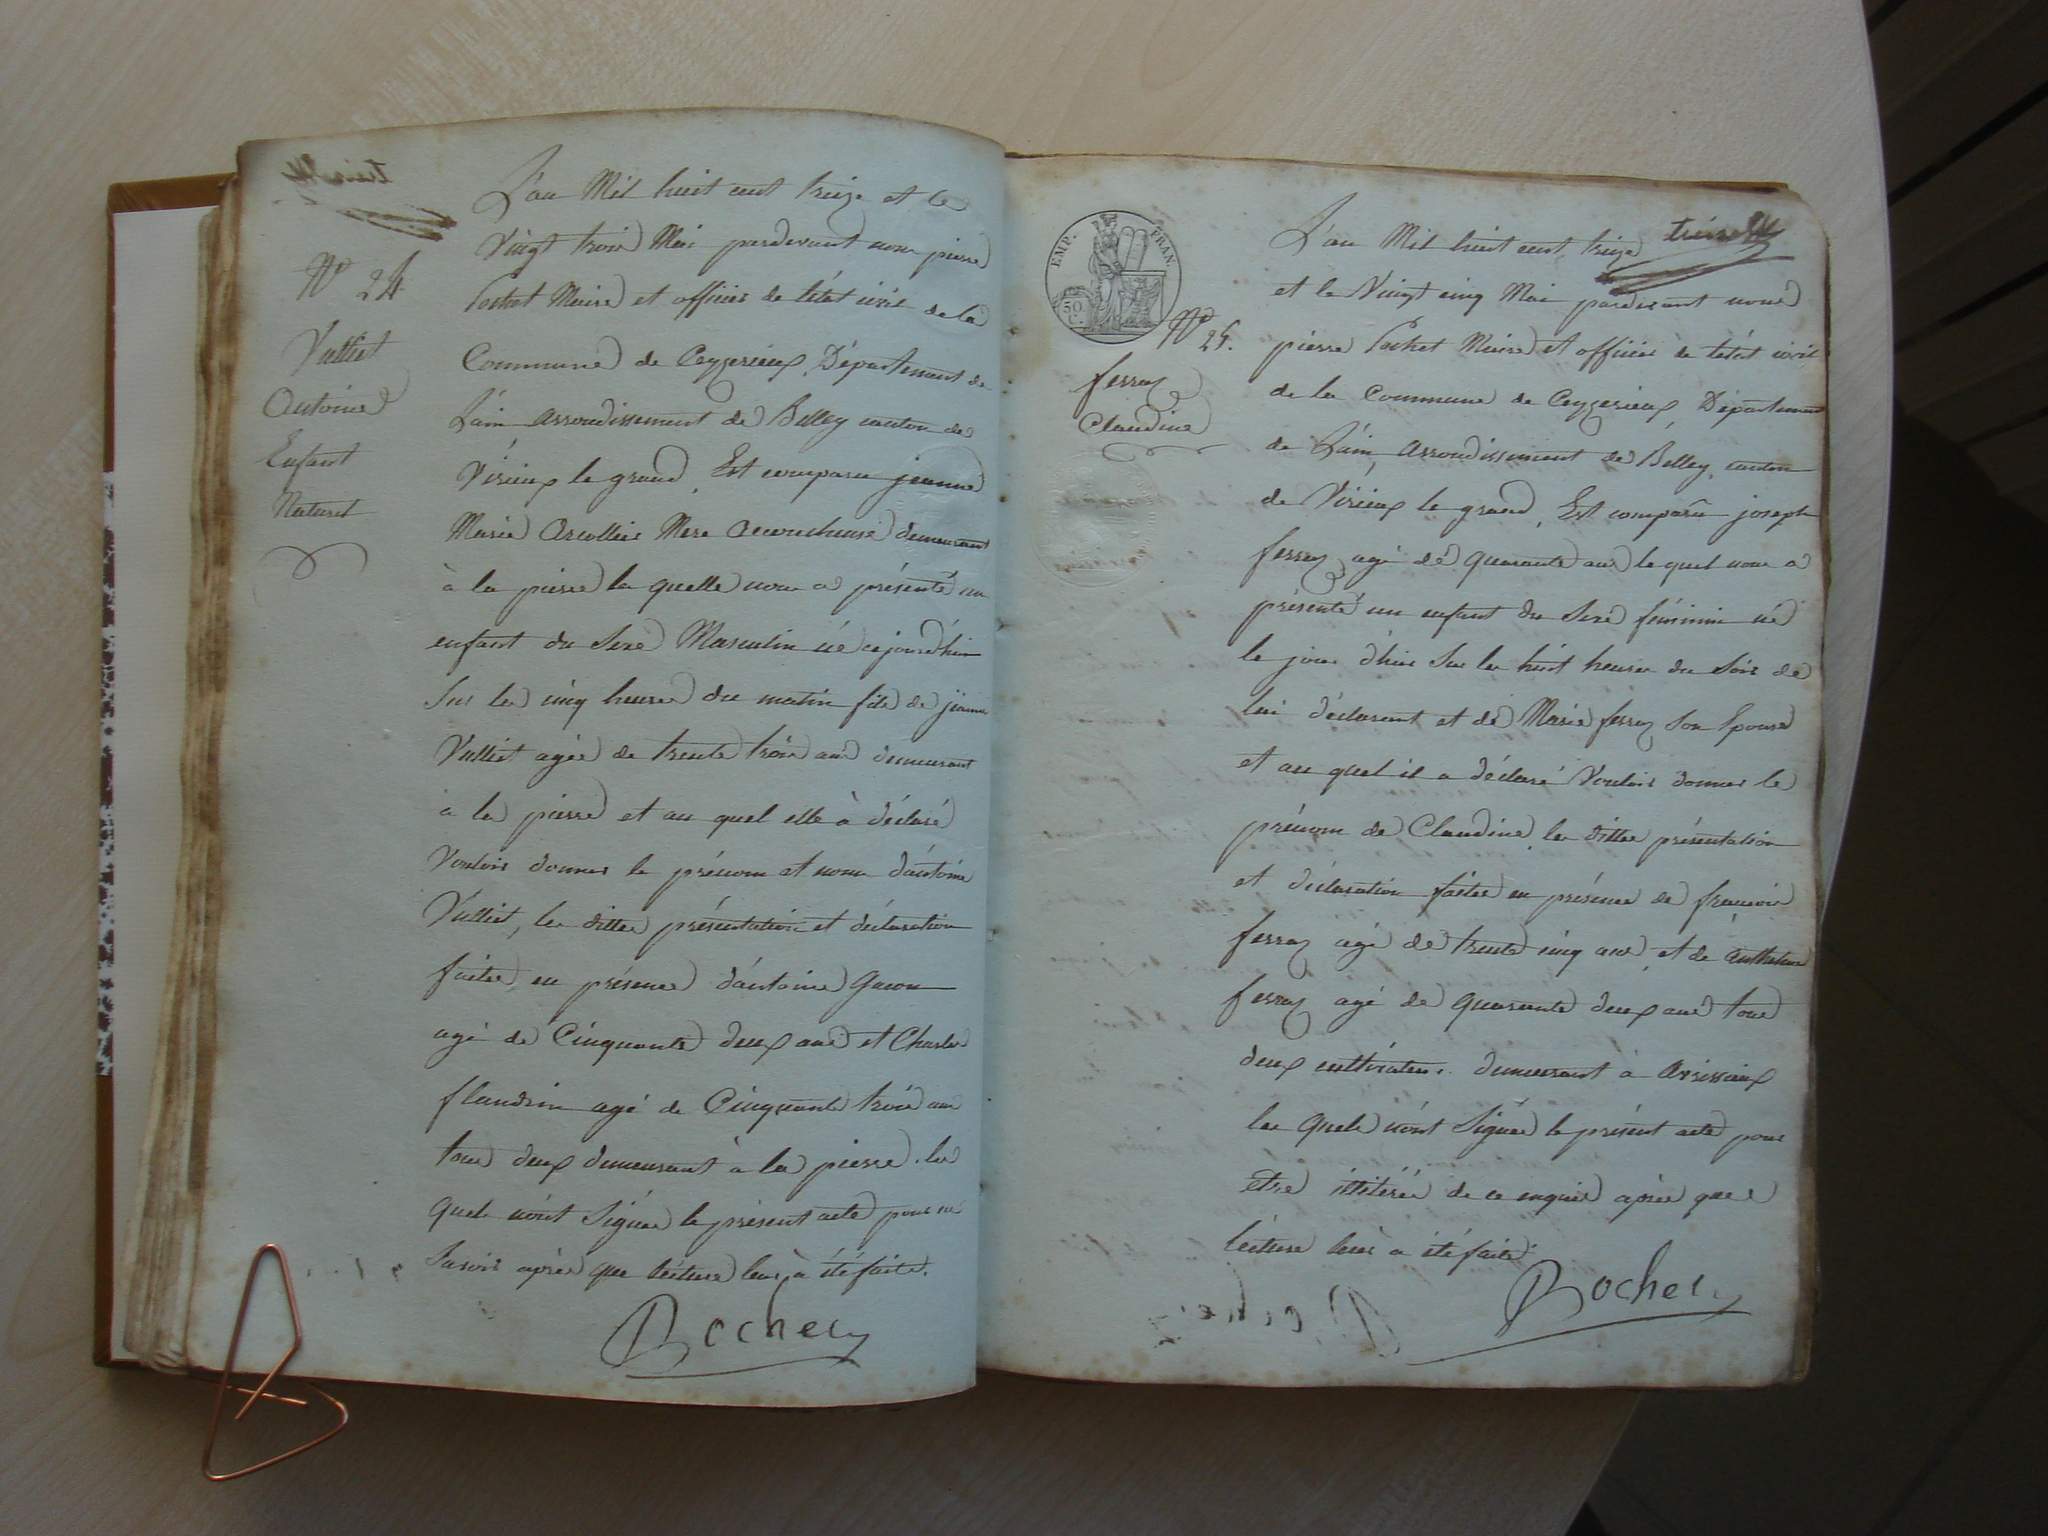 N° 24
Vulliet
Antoine
Enfant
Naturel
L'an Mil huit cent treize et le
Vingt trois Mai pardevant nous pierre
Pochet Maire et officier de l'état civil de la
Commune de Ceyzerieux, Département de
L'ain arrondissement de Belley canton de
Virieux le grand, Est comparu jeanne
Marie Mere accoucheuse demeurant
à la pierre la quelle nous a présenté un
enfant du Sexe Masculin né cejourd'hui
Sur les cinq heures du matin fils de jeanne
Vulliet agée de trente trois ans demeurant
à la pierre et au quel elle à déclaré
Vouloir donner le prénom et nom d'antoine
Vulliet, les dittes présentation et déclaration
faites en présence d'antoine
agé de Cinquante deux ans et Charles
flandrin agé de Cinquante trois ans
tous deux demeurant à la pierre. les
quels n'ont Signés le présent acte pour ne
Savoir après que lécture leur à été faite.
EMP. FRAN.
50
C.
N° 25.
ferroz
Claudine
L'an Mil huit cent treize
et le Vingt cinq Mai pardevant nous
pierre Pochet Maire et officier de l'état civil
de la Commune de Ceyzerieux, Département
de L'ain, arrondissement de Belley, canton
de Virieux le grand, Est comparu joseph
ferroz agé de quarante ans le quel nous a
présenté un enfant du Sexe féminin né
le jour d'hier Sur les huit heures du Soir de
lui déclarant et de Marie ferroz Son Epouse
et au quel il a déclaré Vouloir donner le
prénom de Claudine, les dittes présentation
et déclaration faites en présence de françois
ferroz agé de trente cinq ans, et de anthelme
ferroz agé de quarante deux ans tous
deux cultivateurs demeurant à avrissieux
les quels n'ont Signés le présent acte pour
etre illitérés de ce enquis après que
lécture leur a été faite.